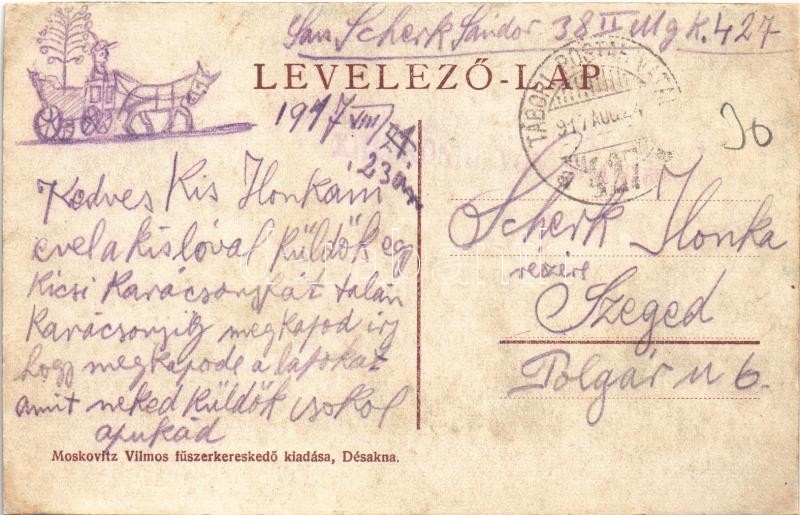 Scherk Sándor 38 II Mg K. 427
LEVELEZŐ-LAP
TÁBORI POSTAHIVATAL
917 AUG 24
427
30
1917 VIII
23án
Kedves Kis Ilonkám
evel a kislóval küldök egy
kicsi karácsonyfát talán
karácsonyig megkapod irj
hogy megkapod e a lapokat
amit neked küldök csokol
apukád
Scherk Ilonka
reszére
Szeged
Polgár u 6.
Moskovitz Vilmos fűszerkereskedő kiadása, Désakna.